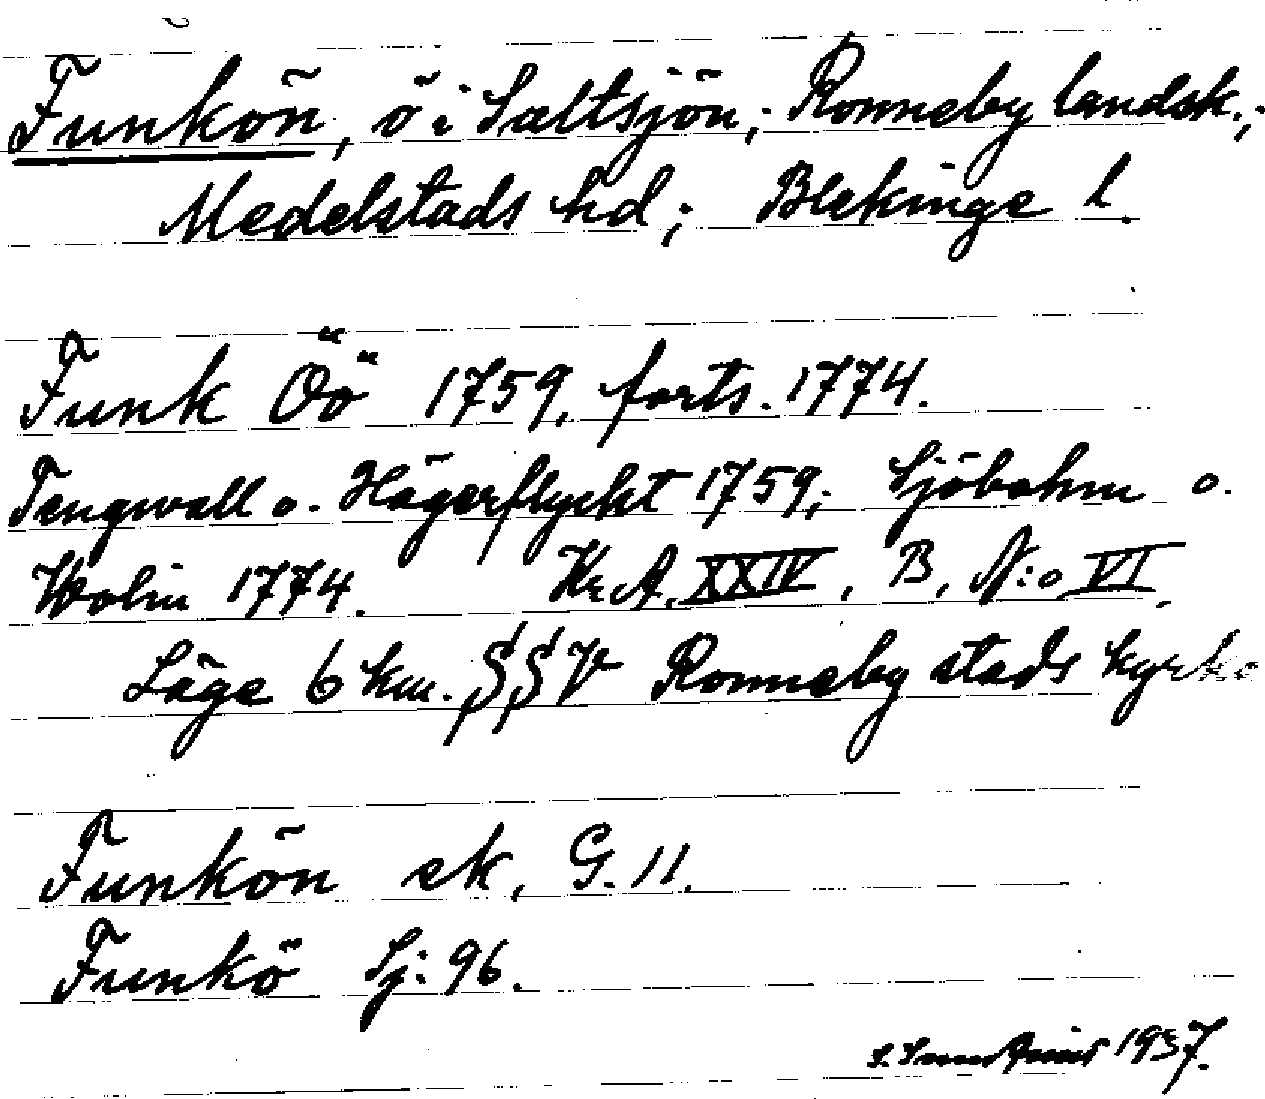 Funkön, ö i Saltsjön; Ronneby landsk.;
Medelstads hd; Blekinge l.
Funk Öö 1759, forts. 1774.
Tengwall o. Hägerflycht 1759; Sjöbohm o.
Wolin 1774. Kr.A. XXIV, B, N:o VI.
Läge 6 km. SSV Ronneby stads kyrka
Funkön ek, G. 11.
Funkö Sj: 96.
1937.